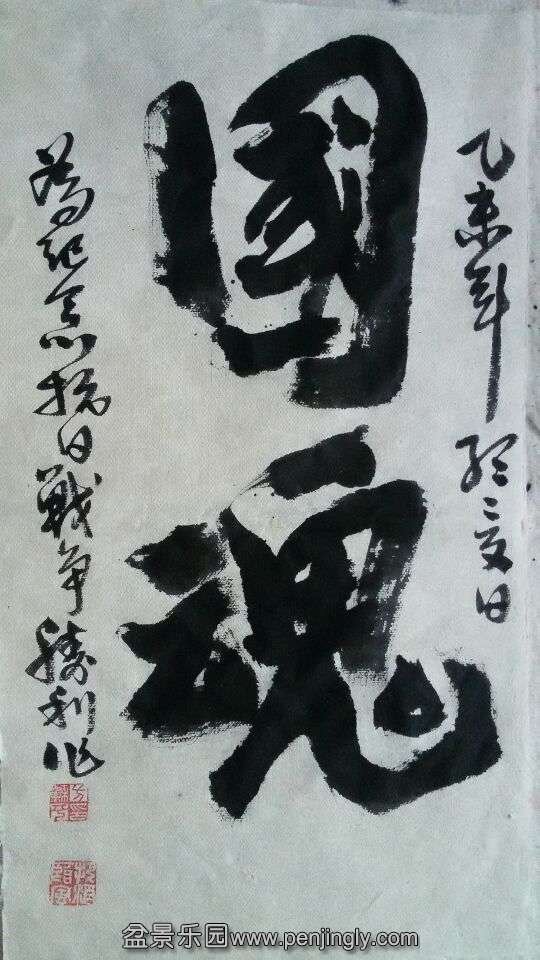 乙未年 日
國魂
為紀念抗日戰爭勝利作
盆景乐园www.penjingly.com